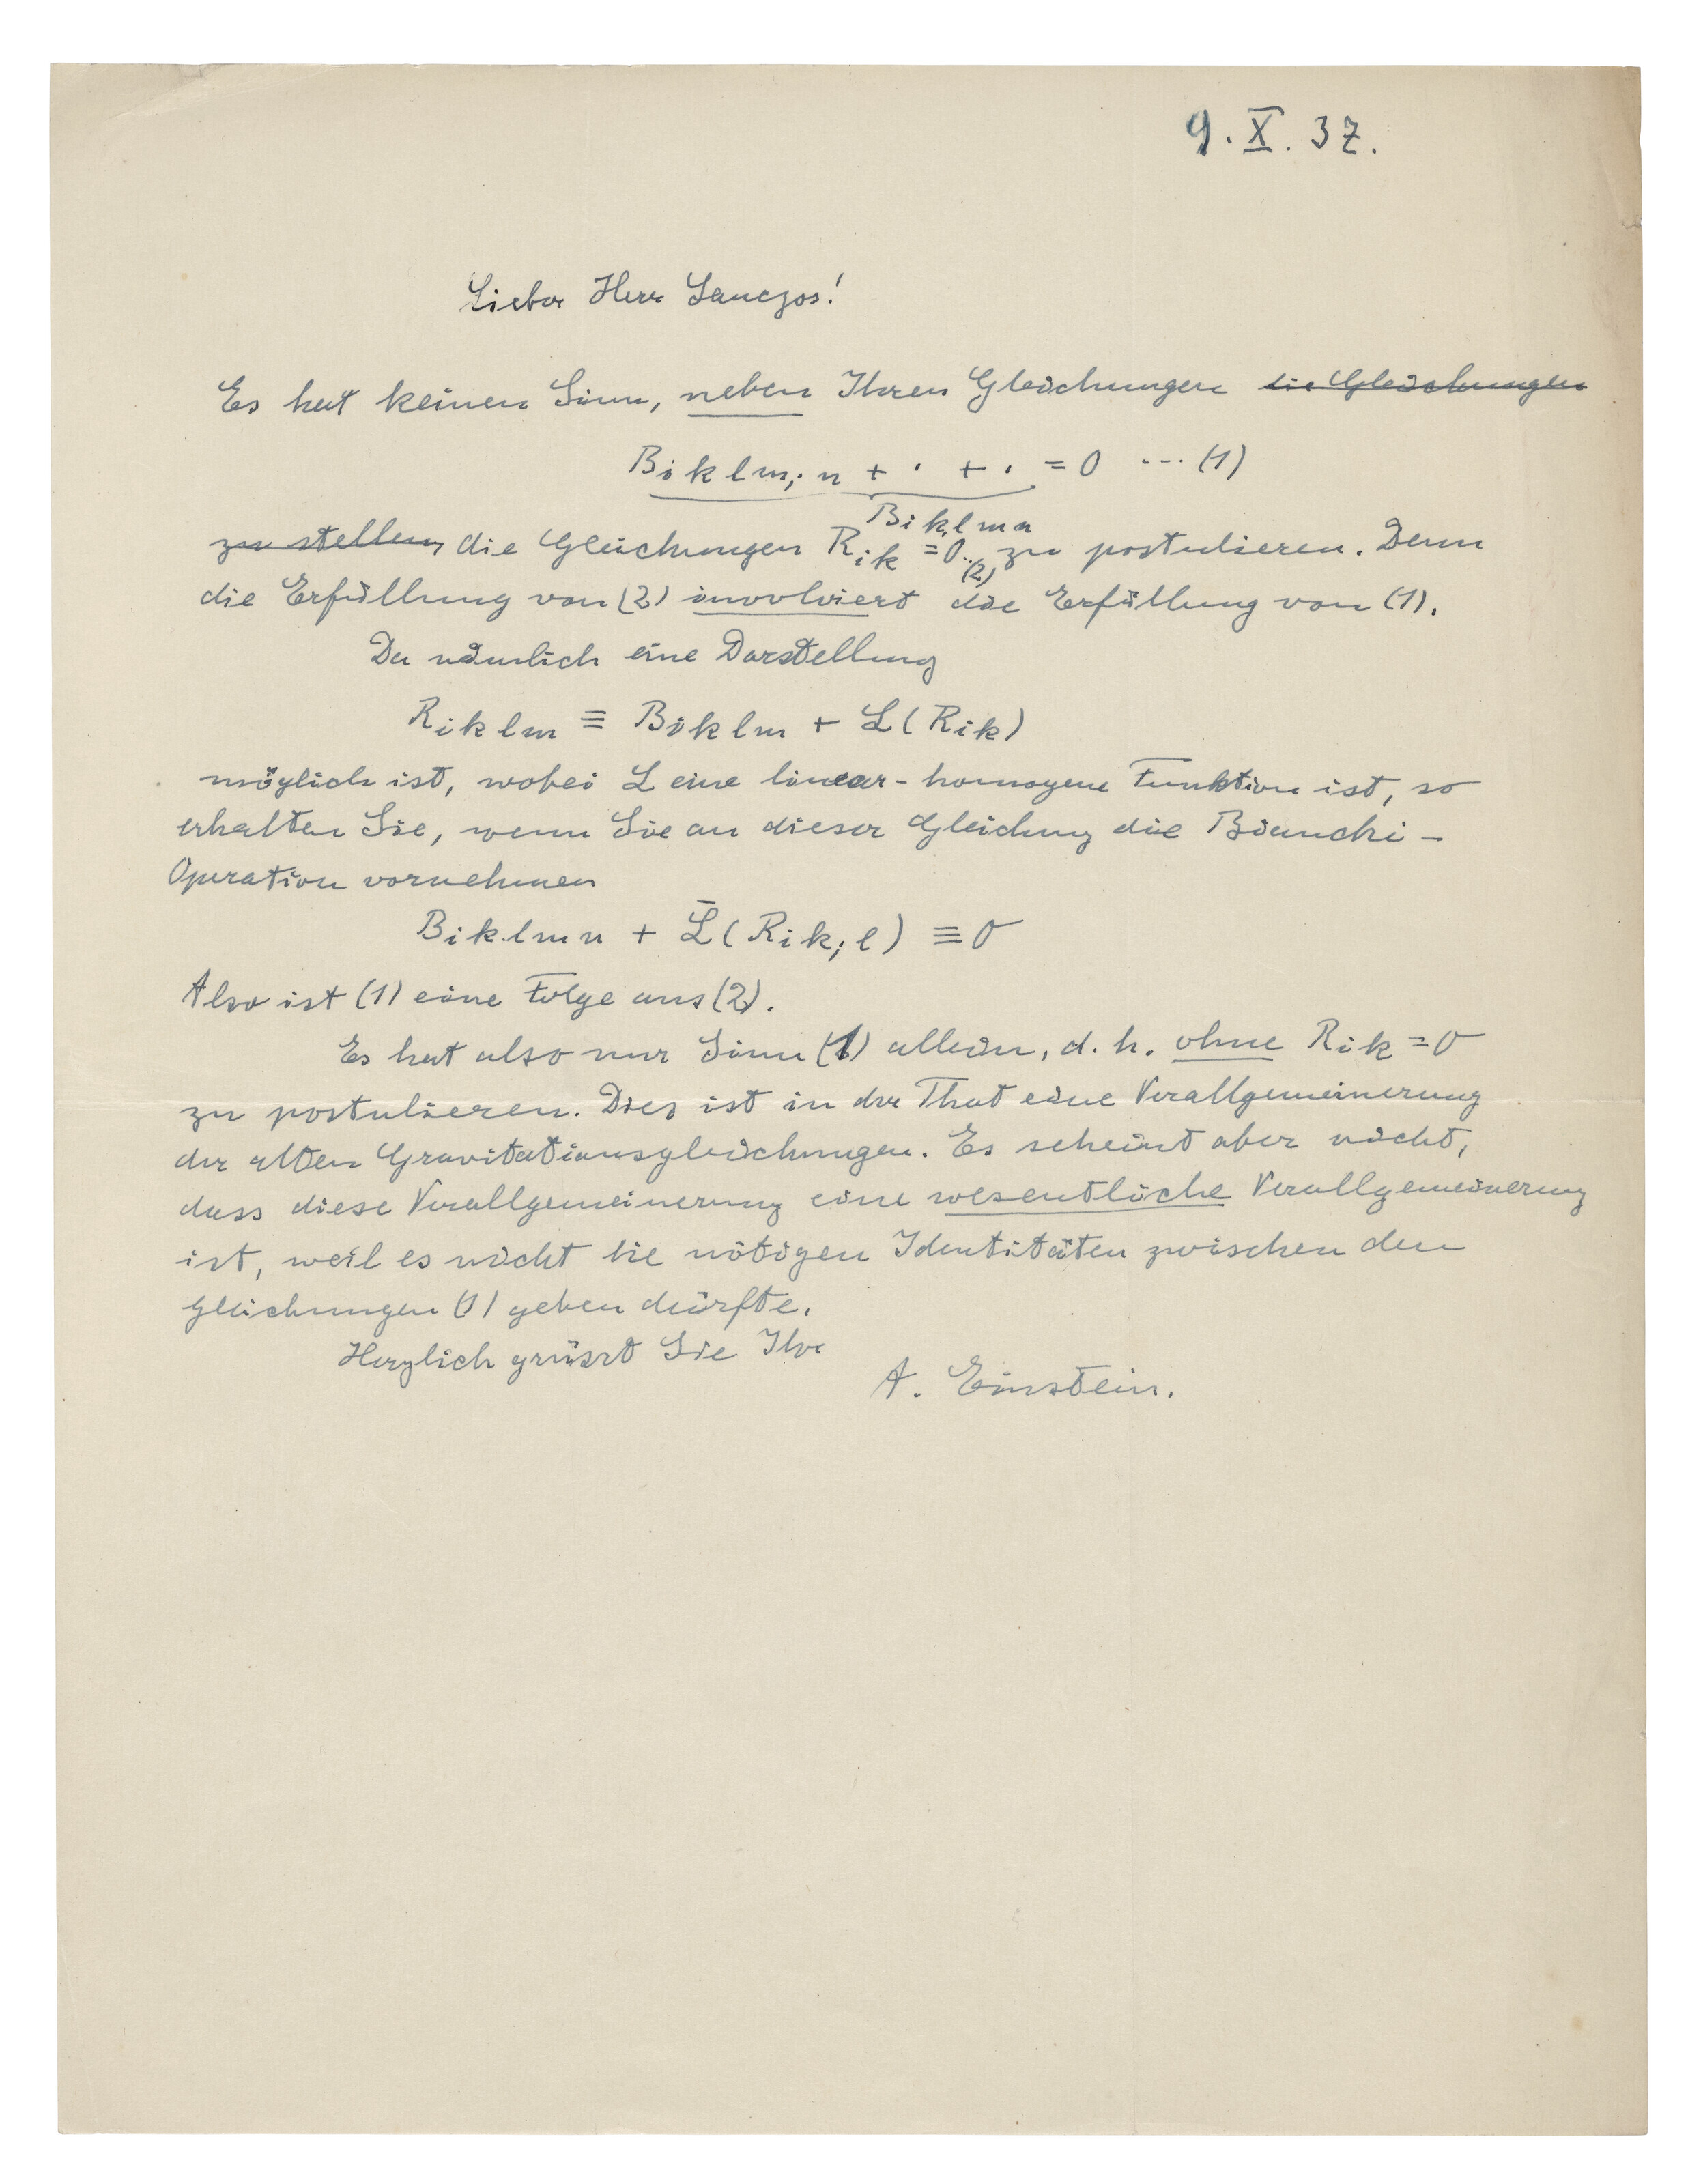 9. X. 37.
Lieber Herr Lanczos!
Es hat keinen Sinn, neben Ihren Gleichungen die Gleichungen
Biklm; n + · + · = 0 ··· (1)
Biklmn
zu stellen, die Gleichungen Rik = 0..(2) zu postulieren. Denn
die Erfüllung von (2) involviert die Erfüllung von (1).
Da nämlich eine Darstellung
Riklm ≡ Biklm + L(Rik)
möglich ist, wobei L eine linear-homogene Funktion ist, so
erhalten Sie, wenn Sie an dieser Gleichung die Bianchi-
Operation vornehmen
Biklmn + L̄(Rik; l) ≡ 0
Also ist (1) eine Folge aus (2).
Es hat also nur Sinn (1) allein, d. h. ohne Rik = 0
zu postulieren. Dies ist in der That eine Verallgemeinerung
der alten Gravitationsgleichungen. Es scheint aber nicht,
dass diese Verallgemeinerung eine wesentliche Verallgemeinerung
ist, weil es nicht die nötigen Identitäten zwischen den
Gleichungen (1) geben dürfte.
Herzlich grüsst Sie Ihr
A. Einstein.